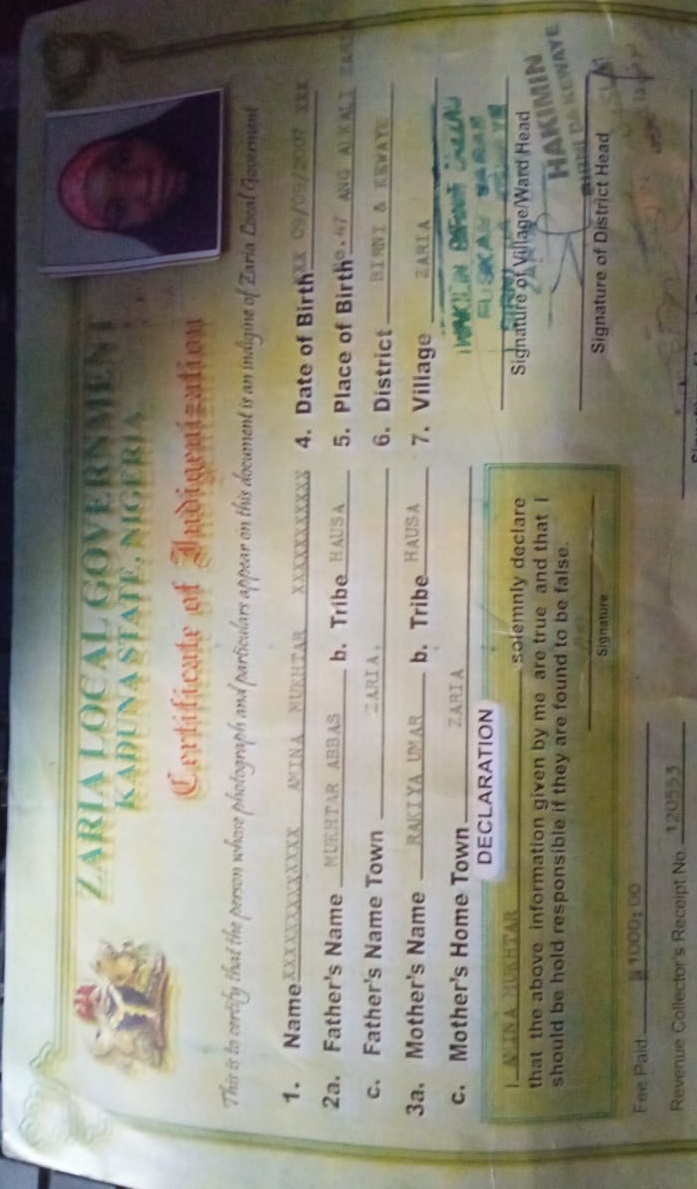 ZARIA LOCAL GOVERNMENT
KADUNA STATE, NIGERIA
Certificate of Indigenization
This is to certify that the person whose photograph and particulars appear on this document is an indigine of Zaria Local Government
1. Name XXXXXXXXXXXXX AMINA MUKHTAR XXXXXXXXXXX
2a. Father's Name MUKHTAR ABBAS b. Tribe HAUSA
c. Father's Name Town ZARIA.
3a. Mother's Name RAKIYA UMAR b. Tribe HAUSA
c. Mother's Home Town ZARIA
4. Date of Birth XX 09/09/2007 XXX
5. Place of Birth ANG ALKALI
6. District BIRNI & KEWAYE
7. Village ZARIA
DECLARATION
I AMINA MUKHTAR solemnly declare
that the above information given by me are true and that I
should be hold responsible if they are found to be false.
Signature
Signature of Village/Ward Head
HAKIMIN
BIRNI DA KEWAYE
Signature of District Head
Fee Paid: ₦1000:00
Revenue Collector's Receipt No 120553